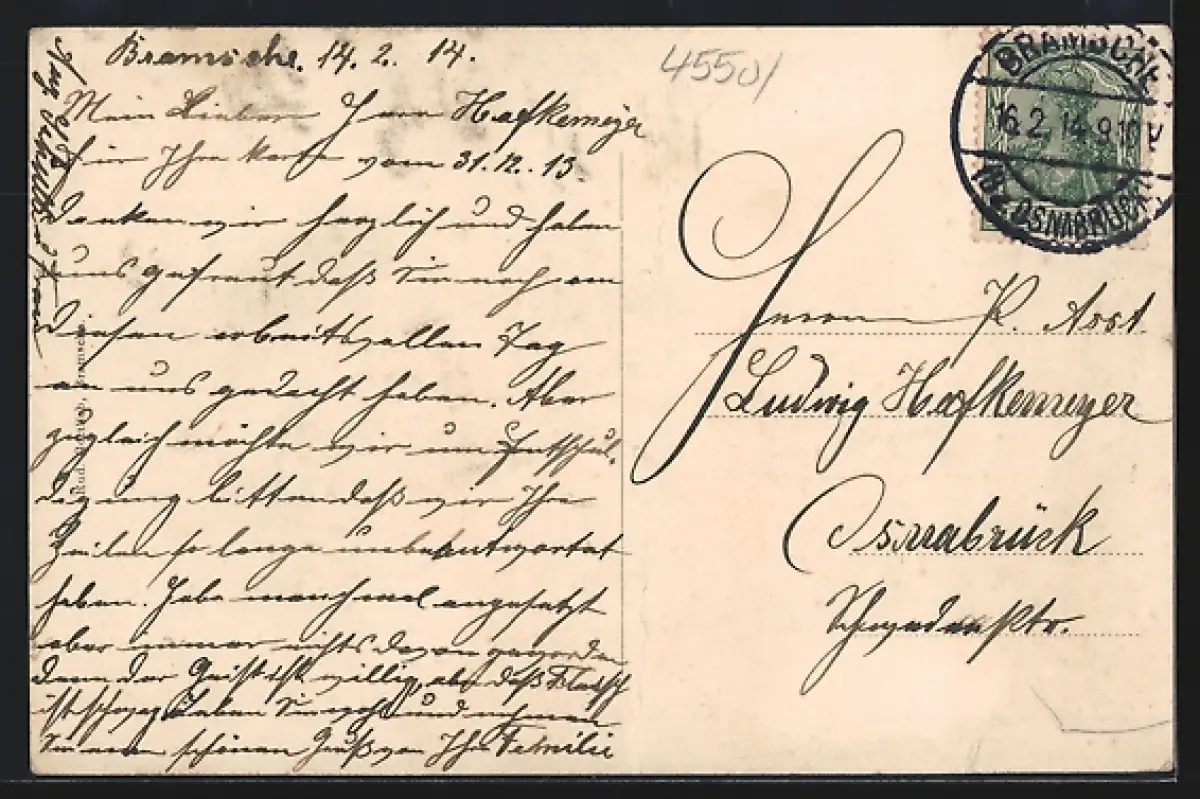 Bramsche. 14. 2. 14.
Mein Lieber Herr Hafkemeyer
Für Ihre Karte vom 31.12.13.
danken wir herzlich und haben
uns gefreut daß Sie noch am
diesen arbeitsvollen Tag
an uns gedacht haben. Aber
zugleich möchte wir um Entschul-
digung bitten daß wir Ihre
Zeilen so lange unbeantwortet
haben. Habe manchmal angesetzt
aber immer nichts davon geworden
denn der Geist ist willig, aber daß Fleisch
ist schwag Leben Sie wohl und nehmen
Sie einen schönen Gruß von Ihre Familie
Aug
4550/
BRAMSCHE
16.2.14.9-10V
(Bz. OSNABRÜCK)
Herrn P. Asst.
Ludwig Hafkemeyer
Osnabrück
Schwedenstr.